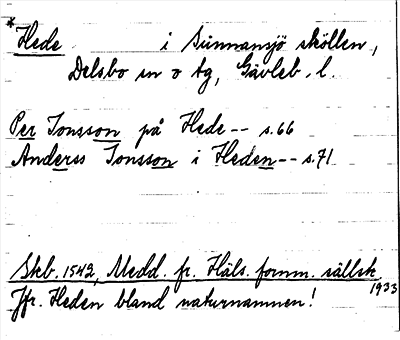 *Hede i Sunnansjö sköllen,
Delsbo sn o tg, Gävleb. l.
Per Jonsson på Hede -- s.66
Anderss Jonsson i Heden -- s.71
Skb. 1542, Medd. fr. Häls. fornm. sällsk 1933
Jfr. Heden bland naturnamnen!